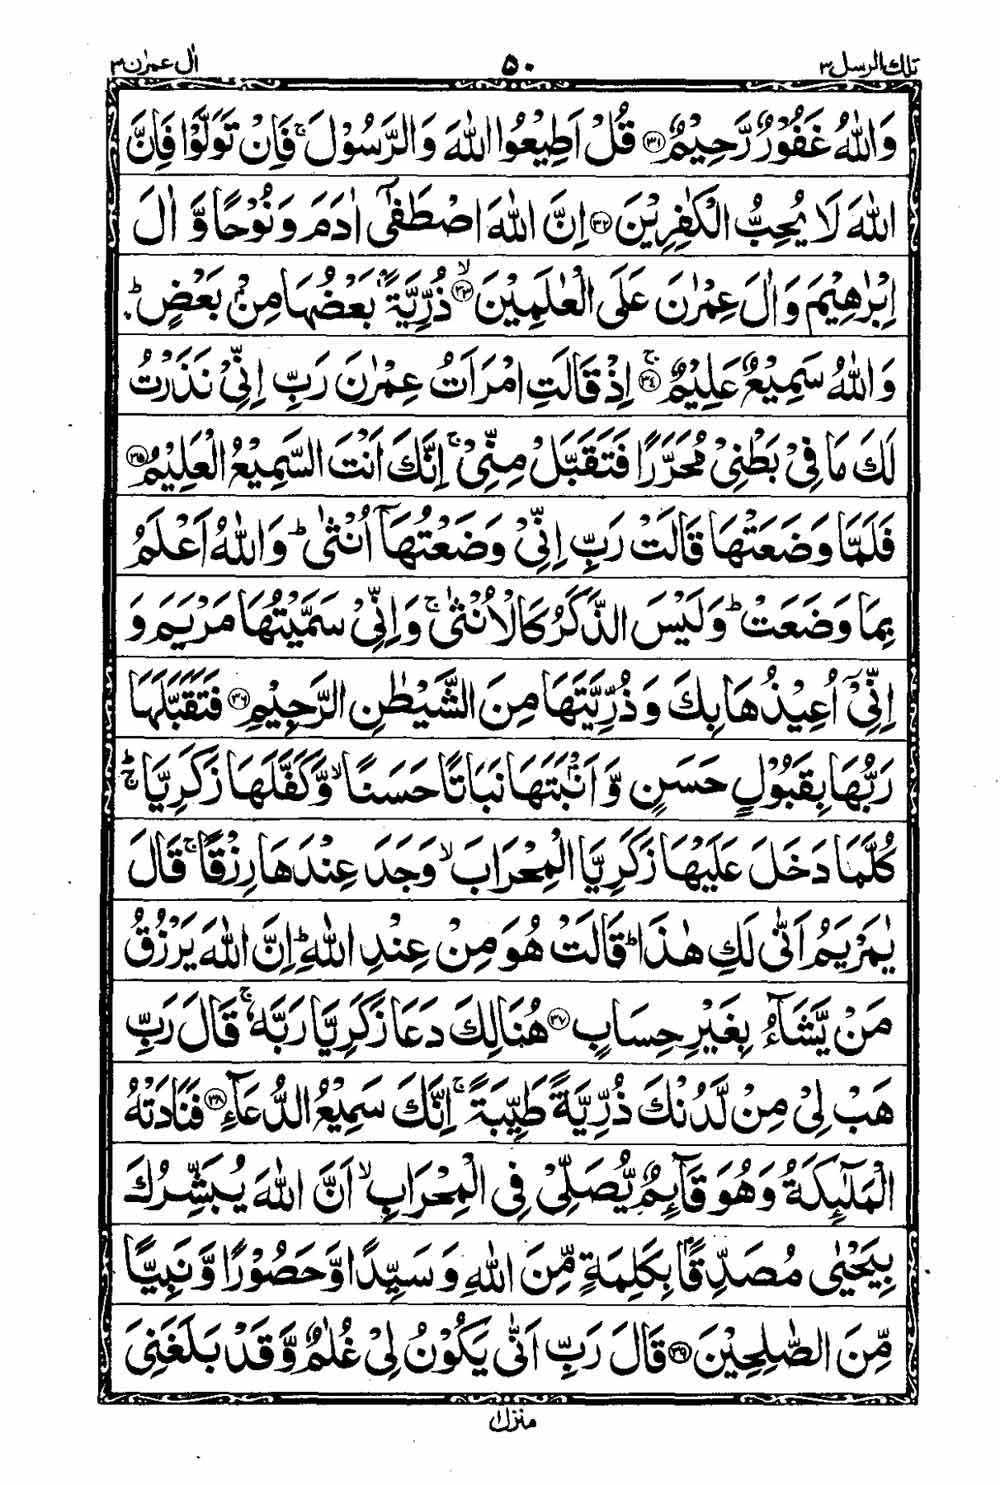 تلك الرسل ٣ ٥٠ اٰل عمرٰن ٣
وَاللّٰهُ غَفُوْرٌ رَّحِيْمٌ ۝٣١ قُلْ اَطِيْعُوا اللّٰهَ وَالرَّسُوْلَ ۚ فَاِنْ تَوَلَّوْا فَاِنَّ
اللّٰهَ لَا يُحِبُّ الْكٰفِرِيْنَ ۝٣٢ اِنَّ اللّٰهَ اصْطَفٰٓى اٰدَمَ وَنُوْحًا وَّ اٰلَ
اِبْرٰهِيْمَ وَ اٰلَ عِمْرٰنَ عَلَى الْعٰلَمِيْنَ ۙ۝٣٣ ذُرِّيَّةًۢ بَعْضُهَا مِنْۢ بَعْضٍ ؕ
وَاللّٰهُ سَمِيْعٌ عَلِيْمٌ ۚ۝٣٤ اِذْ قَالَتِ امْرَاَتُ عِمْرٰنَ رَبِّ اِنِّيْ نَذَرْتُ
لَكَ مَا فِيْ بَطْنِيْ مُحَرَّرًا فَتَقَبَّلْ مِنِّيْ ۚ اِنَّكَ اَنْتَ السَّمِيْعُ الْعَلِيْمُ ۝٣٥
فَلَمَّا وَضَعَتْهَا قَالَتْ رَبِّ اِنِّيْ وَضَعْتُهَاۤ اُنْثٰى ؕ وَاللّٰهُ اَعْلَمُ
بِمَا وَضَعَتْ ؕ وَلَيْسَ الذَّكَرُ كَالْاُنْثٰى ۚ وَاِنِّيْ سَمَّيْتُهَا مَرْيَمَ وَ
اِنِّيْۤ اُعِيْذُهَا بِكَ وَ ذُرِّيَّتَهَا مِنَ الشَّيْطٰنِ الرَّجِيْمِ ۝٣٦ فَتَقَبَّلَهَا
رَبُّهَا بِقَبُوْلٍ حَسَنٍ وَّ اَنْۢبَتَهَا نَبَاتًا حَسَنًا ۙ وَّكَفَّلَهَا زَكَرِيَّا ۚؕ
كُلَّمَا دَخَلَ عَلَيْهَا زَكَرِيَّا الْمِحْرَابَ ۙ وَجَدَ عِنْدَهَا رِزْقًا ۚ قَالَ
يٰمَرْيَمُ اَنّٰى لَكِ هٰذَا ؕ قَالَتْ هُوَ مِنْ عِنْدِ اللّٰهِ ؕ اِنَّ اللّٰهَ يَرْزُقُ
مَنْ يَّشَآءُ بِغَيْرِ حِسَابٍ ۝٣٧ هُنَالِكَ دَعَا زَكَرِيَّا رَبَّهٗ ۚ قَالَ رَبِّ
هَبْ لِيْ مِنْ لَّدُنْكَ ذُرِّيَّةً طَيِّبَةً ۚ اِنَّكَ سَمِيْعُ الدُّعَآءِ ۝٣٨ فَنَادَتْهُ
الْمَلٰٓئِكَةُ وَهُوَ قَآئِمٌ يُّصَلِّيْ فِي الْمِحْرَابِ ۙ اَنَّ اللّٰهَ يُبَشِّرُكَ
بِيَحْيٰى مُصَدِّقًۢا بِكَلِمَةٍ مِّنَ اللّٰهِ وَ سَيِّدًا وَّحَصُوْرًا وَّنَبِيًّا
مِّنَ الصّٰلِحِيْنَ ۝٣٩ قَالَ رَبِّ اَنّٰى يَكُوْنُ لِيْ غُلٰمٌ وَّقَدْ بَلَغَنِيَ
منزل ١